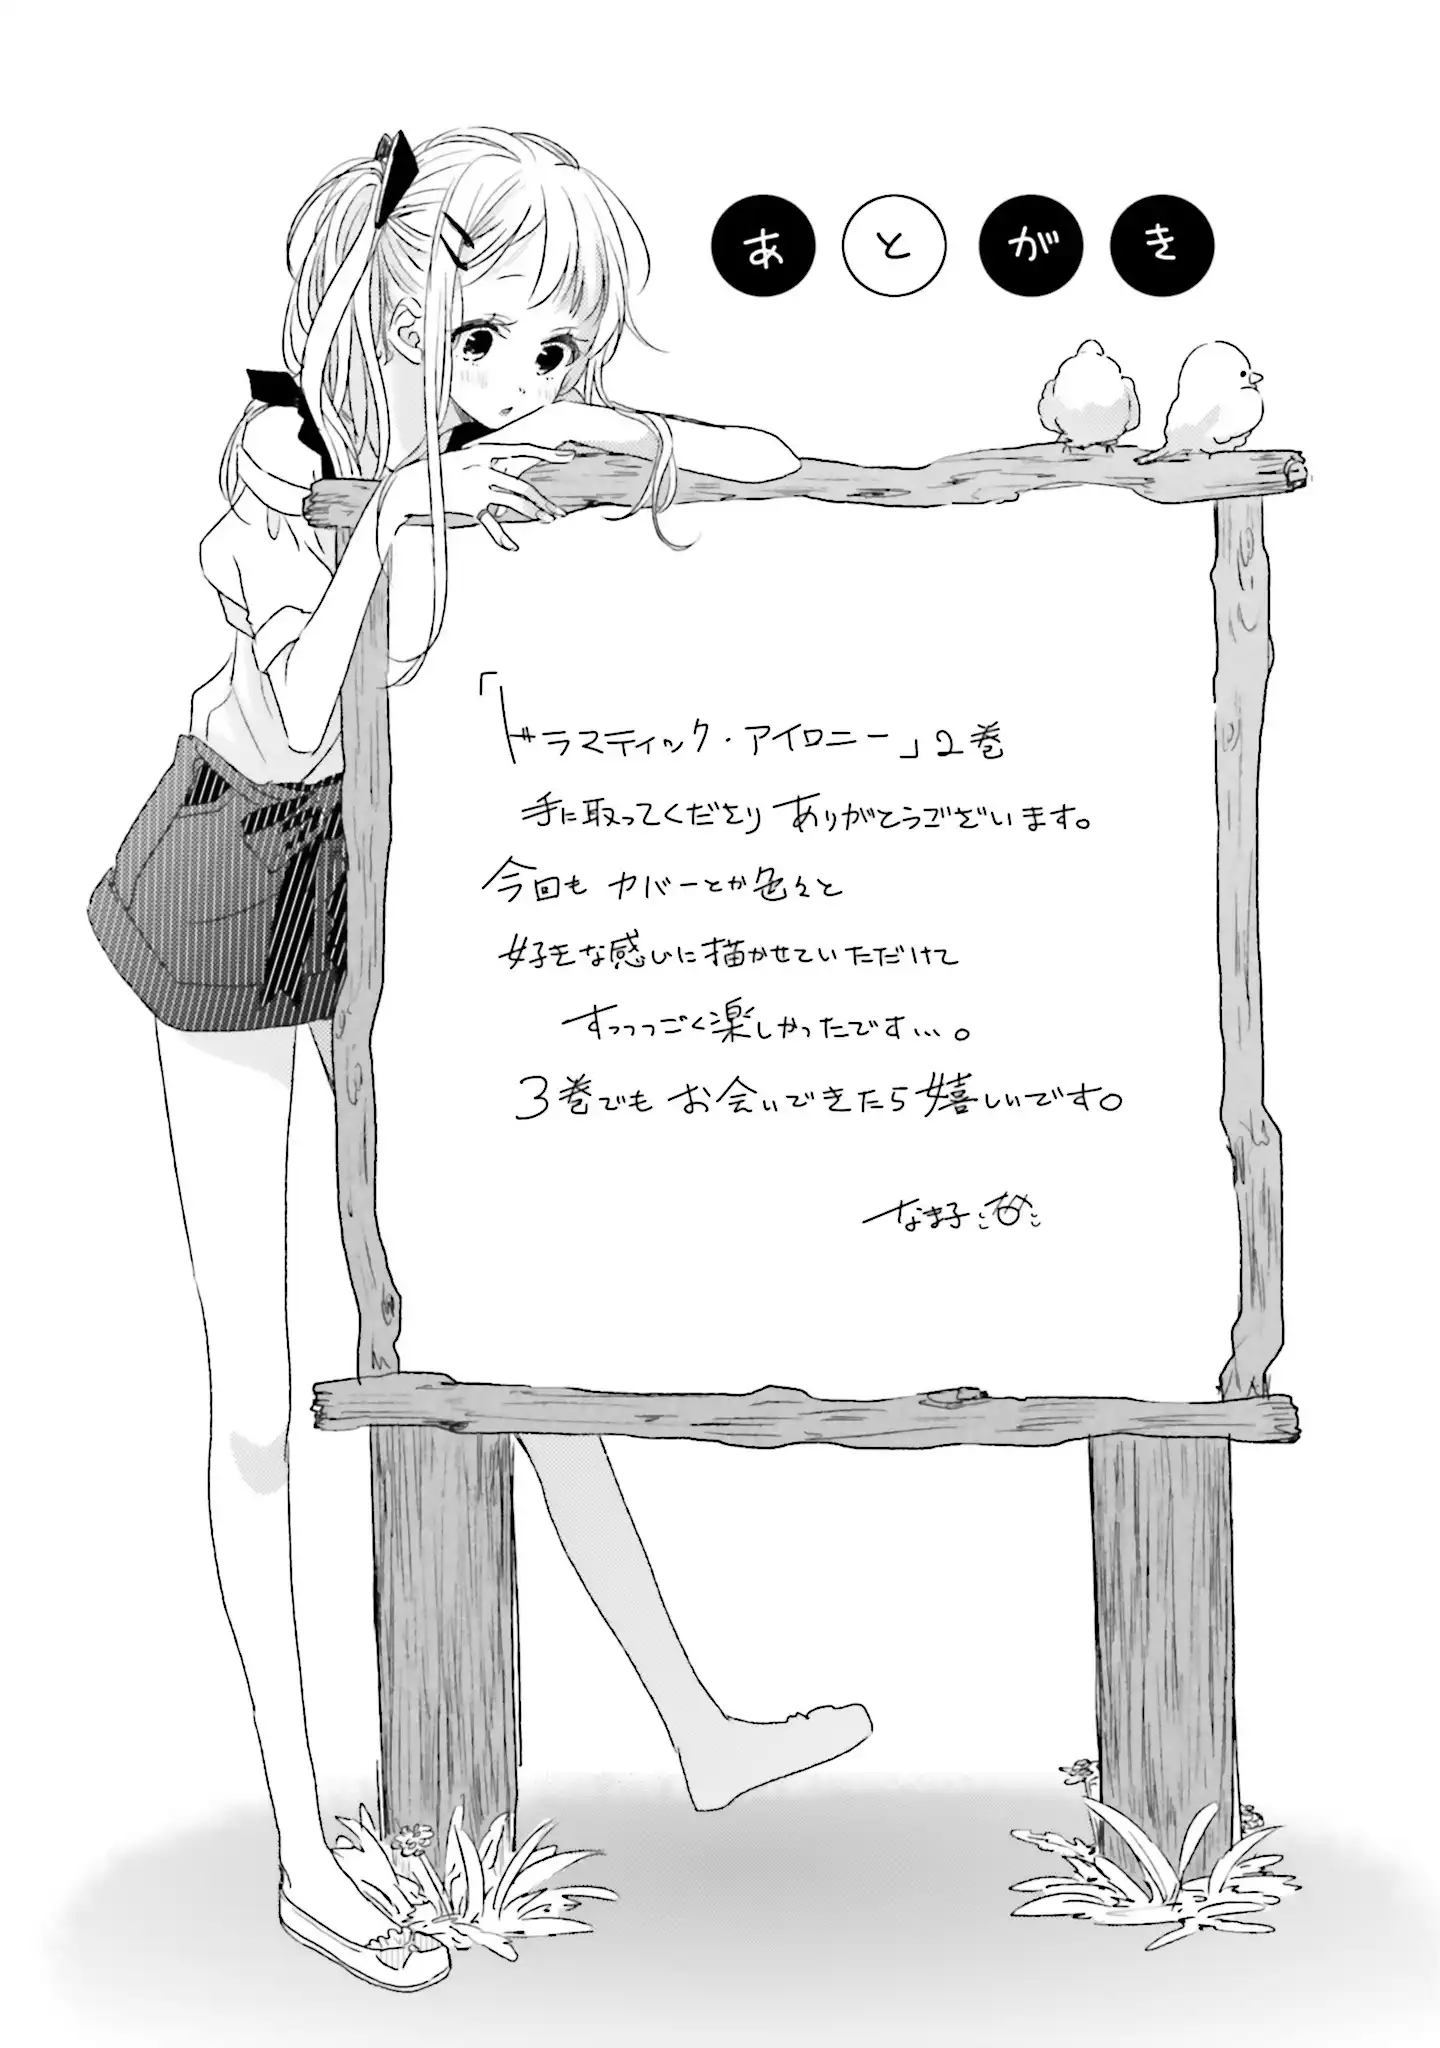 あとがき
「ドラマティック・アイロニー」2巻
手に取ってくださりありがとうございます。
今回もカバーとか色々と
好きな感じに描かせていただけて
すっっっごく楽しかったです…。
3巻でもお会いできたら嬉しいです。
なま子